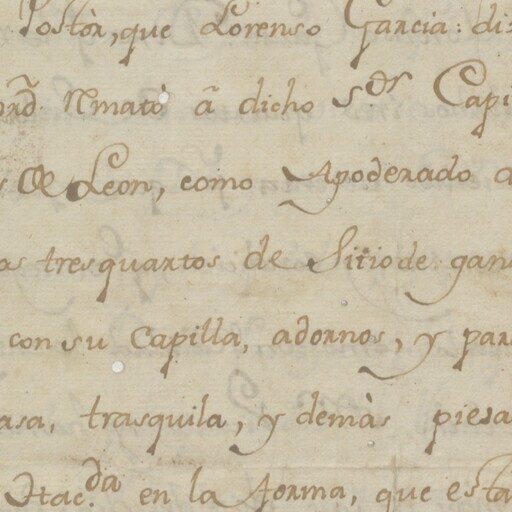 Postòr, que Lorenso Garcia: di
Rmatò â dicho s.or Capi
De Leon, como Apoderado
os tresquartos de Sitio de gan
con su Capilla, adornos, y par
asa, trasquila, y demàs piesa
Hac.da en la forma, que esta